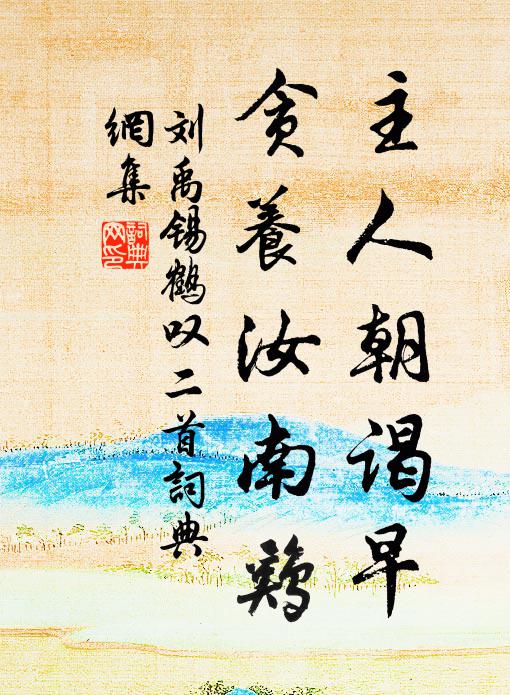 主人朝谒早
贪养汝南鷄
刘禹锡鶴叹二首詞典
網集
詞典
网印